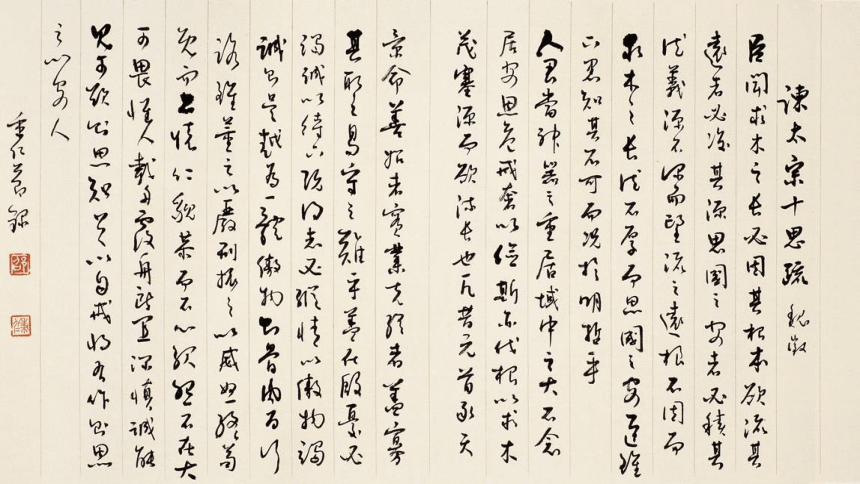 諫太宗十思疏 魏徵
臣聞求木之長必固其根本欲流其
遠者必浚其源思國之安者必積其
德義源不深而望流之遠根不固而
求木之長德不厚而思國之安臣雖
下愚知其不可而況於明哲乎
人君當神器之重居域中之大不念
居安思危戒奢以儉斯亦伐根以求木
茂塞源而欲流長也凡昔元首承天
景命善始者實繁克終者蓋寡
豈取之易守之難乎蓋在殷憂必
竭誠以待下既得志必縱情以傲物竭
誠則吳越為一體傲物則骨肉為行
路雖董之以嚴刑振之以威怒終苟
免而不懷仁貌恭而不心服怨不在大
可畏惟人載舟覆舟所宜深慎誠能
見可欲則思知足以自戒將有作則思
之以安人
節錄